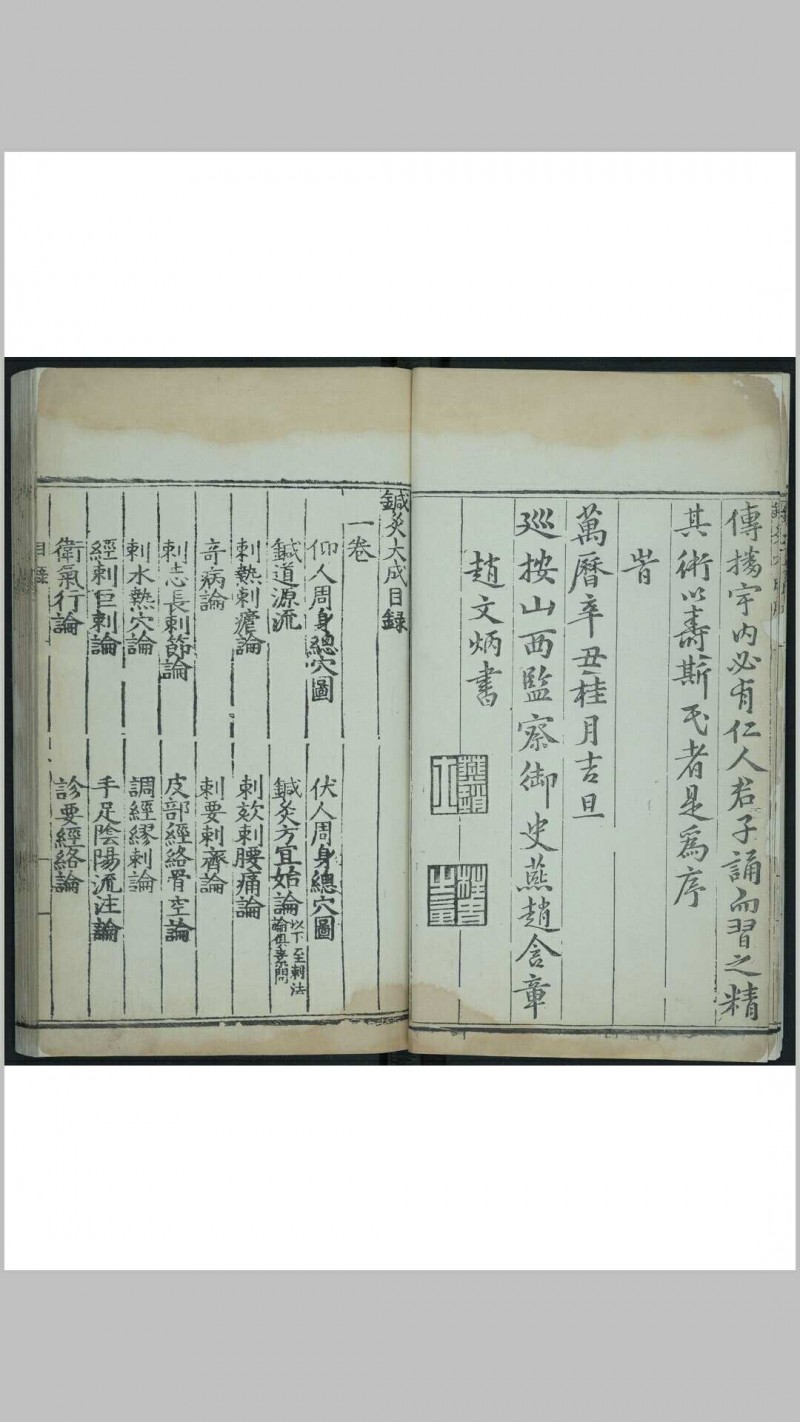 傳播宇内必有仁人君子誦而習之精
其術以壽斯民者是爲序
旹
萬曆辛丑桂月吉旦
巡按山西監察御史燕趙含章
趙文炳書
鍼灸大成目錄
一卷
仰人周身總穴圖 伏人周身總穴圖
鍼道源流 鍼灸方宜始論 以下至刺法論俱素問
刺熱刺瘧論 刺欬刺腰痛論
奇病論 刺要刺齊論
刺志長刺節論 皮部經絡骨空論
刺水熱穴論 調經繆刺論
經刺巨刺論 手足陰陽流注論
衛氣行論 診要經絡論
目錄